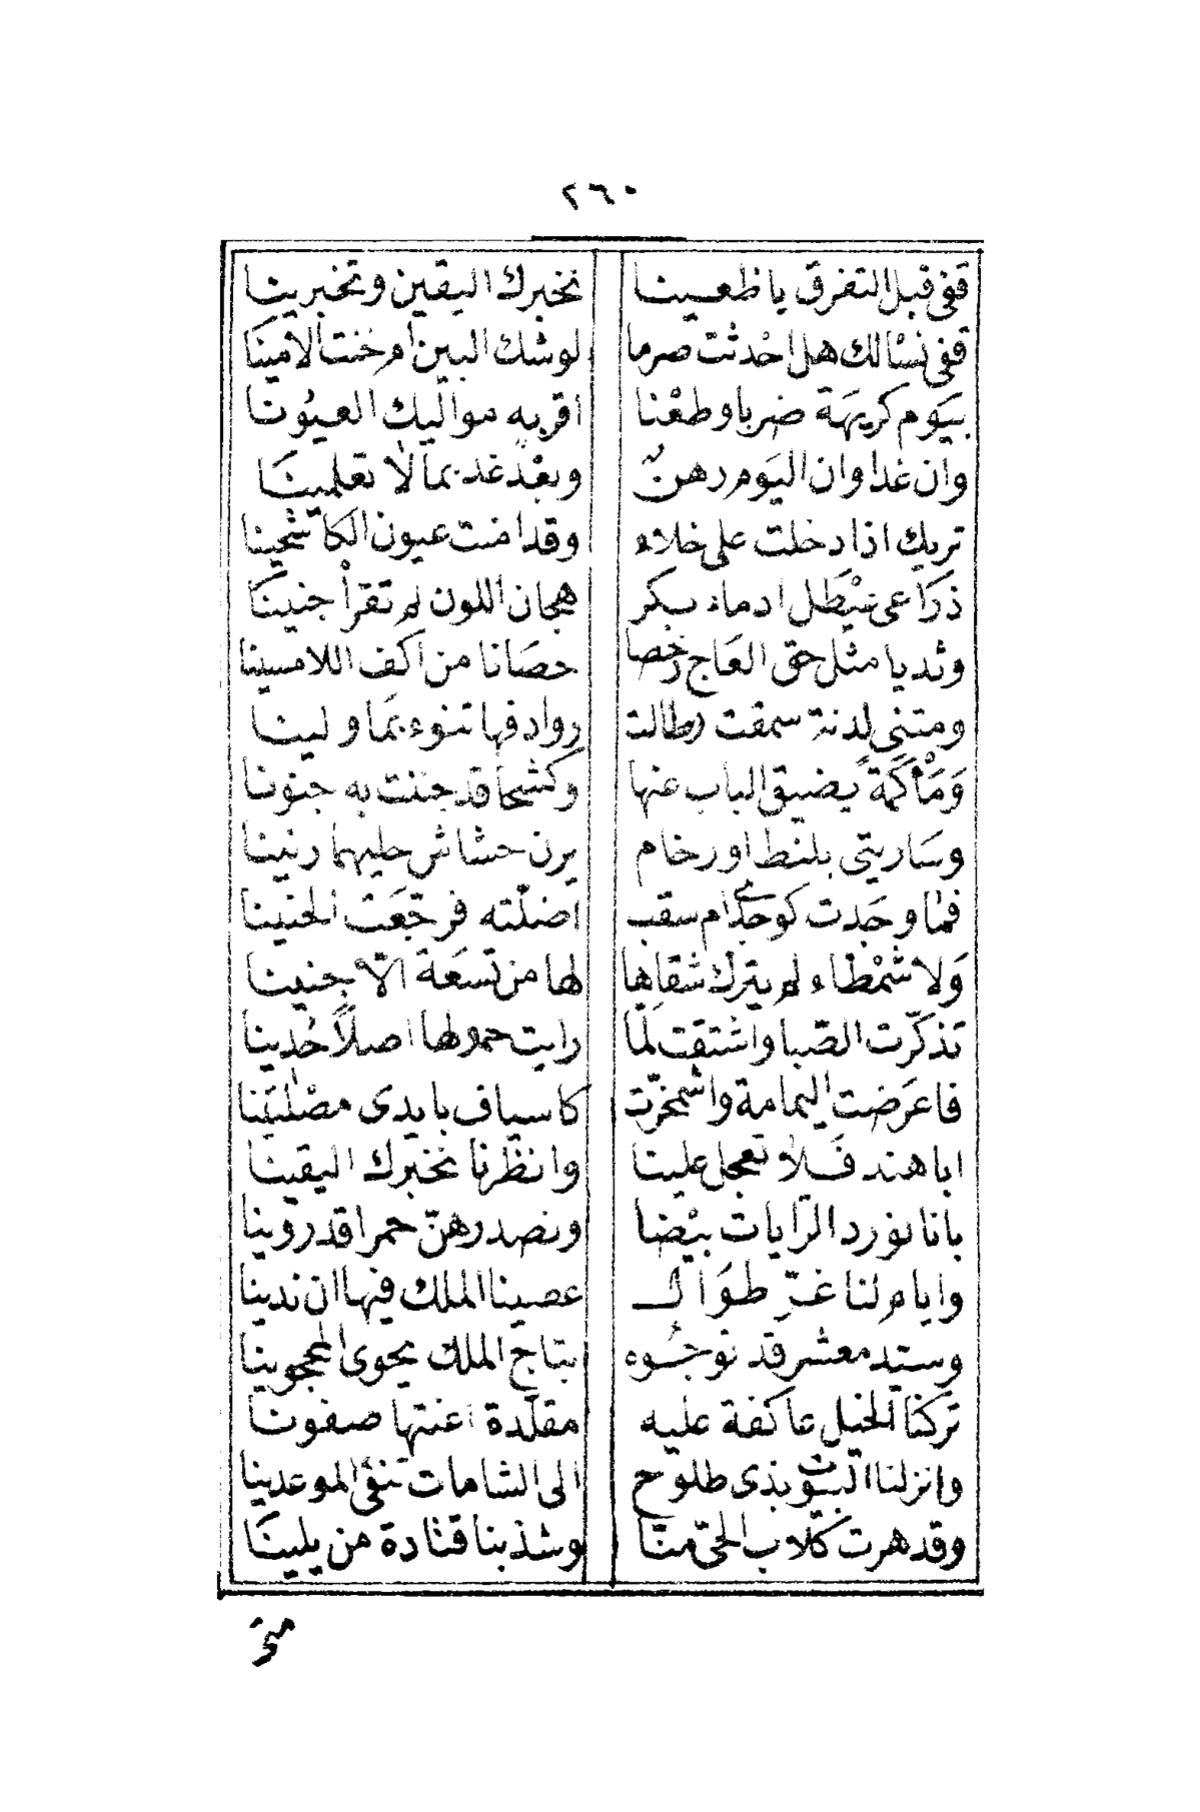 ٢٦٠
قفى قبل التفرق يا ظعينا نخبرك اليقين وتخبرينا
قفى نسْالك هل احْدثت صرما لوشك البين ام خنت الامينَا
بيَوم كريهَة ضربا وطعْنا اقر به مواليك العيُونا
وان غدا وان اليَوم رهنٌ وبعْد غد بما لا تعلمينَا
تريك اذا دخلت على خلاء وقد امنت عيون الكاشحينا
ذرَاعى عيْطل ادماء بكر هجان اللون لم تقرأ جنينَا
وثديا مثل حق العَاج رخصا حصَانا من اكف اللامسينا
ومتنى لدنة سمقت وطالت روادفها تنوء بمَا ولينا
وَمَأْكَمَة يضيق الباب عنها وكشحا قد جننت به جنونا
وسَاريتى بلنط او رخام يرن خشاش حليهما رنينا
فما وجَدت كوجدى ام سقب اضلّته فرجّعَت الحنينا
وَلا شمْطاء لم يترك شقاها لها من تسَعَة الّا جنينا
تذكّرت الصّبا واشتقت لمّا رايت حمولها اصلاً حُدينا
فاعرَضت اليمامة واشمخرّت كاسياف بايدى مصْلتينَا
ابا هند فَلا تعجل علينا وانظرنا نخبرك اليقينا
بانا نورد الرّايات بيْضا ونصدرهنّ حمرا قد روينا
وايام لنا غرّ طوَال عصينا الملك فيها ان ندينا
وسيّد معشر قد توجُوه بتاج الملك يحوى المحجوينا
تركنا الخيل عاكفة عليه مقلّدة اعنتها صفونا
وانزلنا البيُوت بذى طلوح الى الشامات تنفى الموعدينا
وقد هرت كلاب الحىّ منّا وشذبنا قتادة من يلينَا